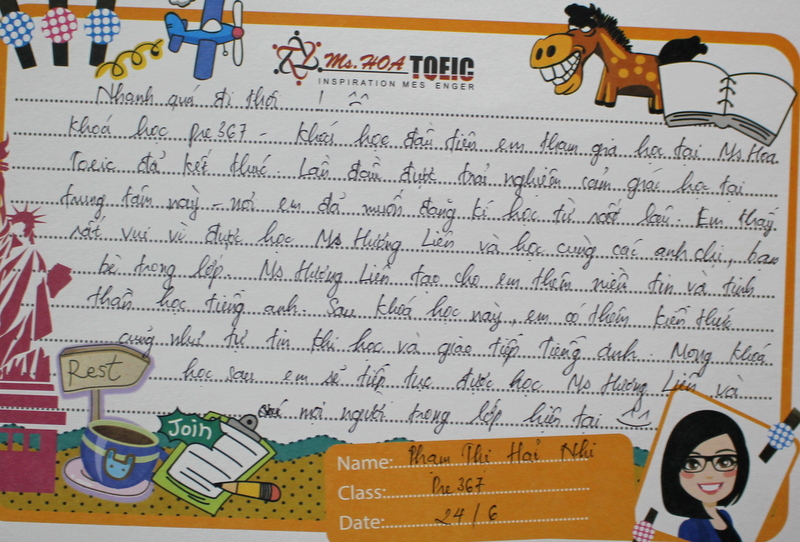 Ms. HOA TOEIC
INSPIRATION MESSENGER
Nhanh quá đi thôi ! ^^
Khoá học Pre 367 - khoá học đầu tiên em tham gia học tại Ms Hoa
Toeic đã kết thúc. Lần đầu được trải nghiệm cảm giác học tại
trung tâm này - nơi em đã muốn đăng kí học từ rất lâu. Em thấy
rất vui vì được học Ms Hương Liên và học cùng các anh chị, bạn
bè trong lớp. Ms Hương Liên tạo cho em thêm niềm tin và tinh
thần học tiếng anh. Sau khoá học này, em có thêm kiến thức
cũng như tự tin khi học và giao tiếp Tiếng Anh. Mong khoá
học sau em sẽ tiếp tục được học Ms Hương Liên và
mọi người trong lớp hiện tại ^^
Rest
Join
Name: Phạm Thị Hải Nhi
Class: Pre 367
Date: 24/6